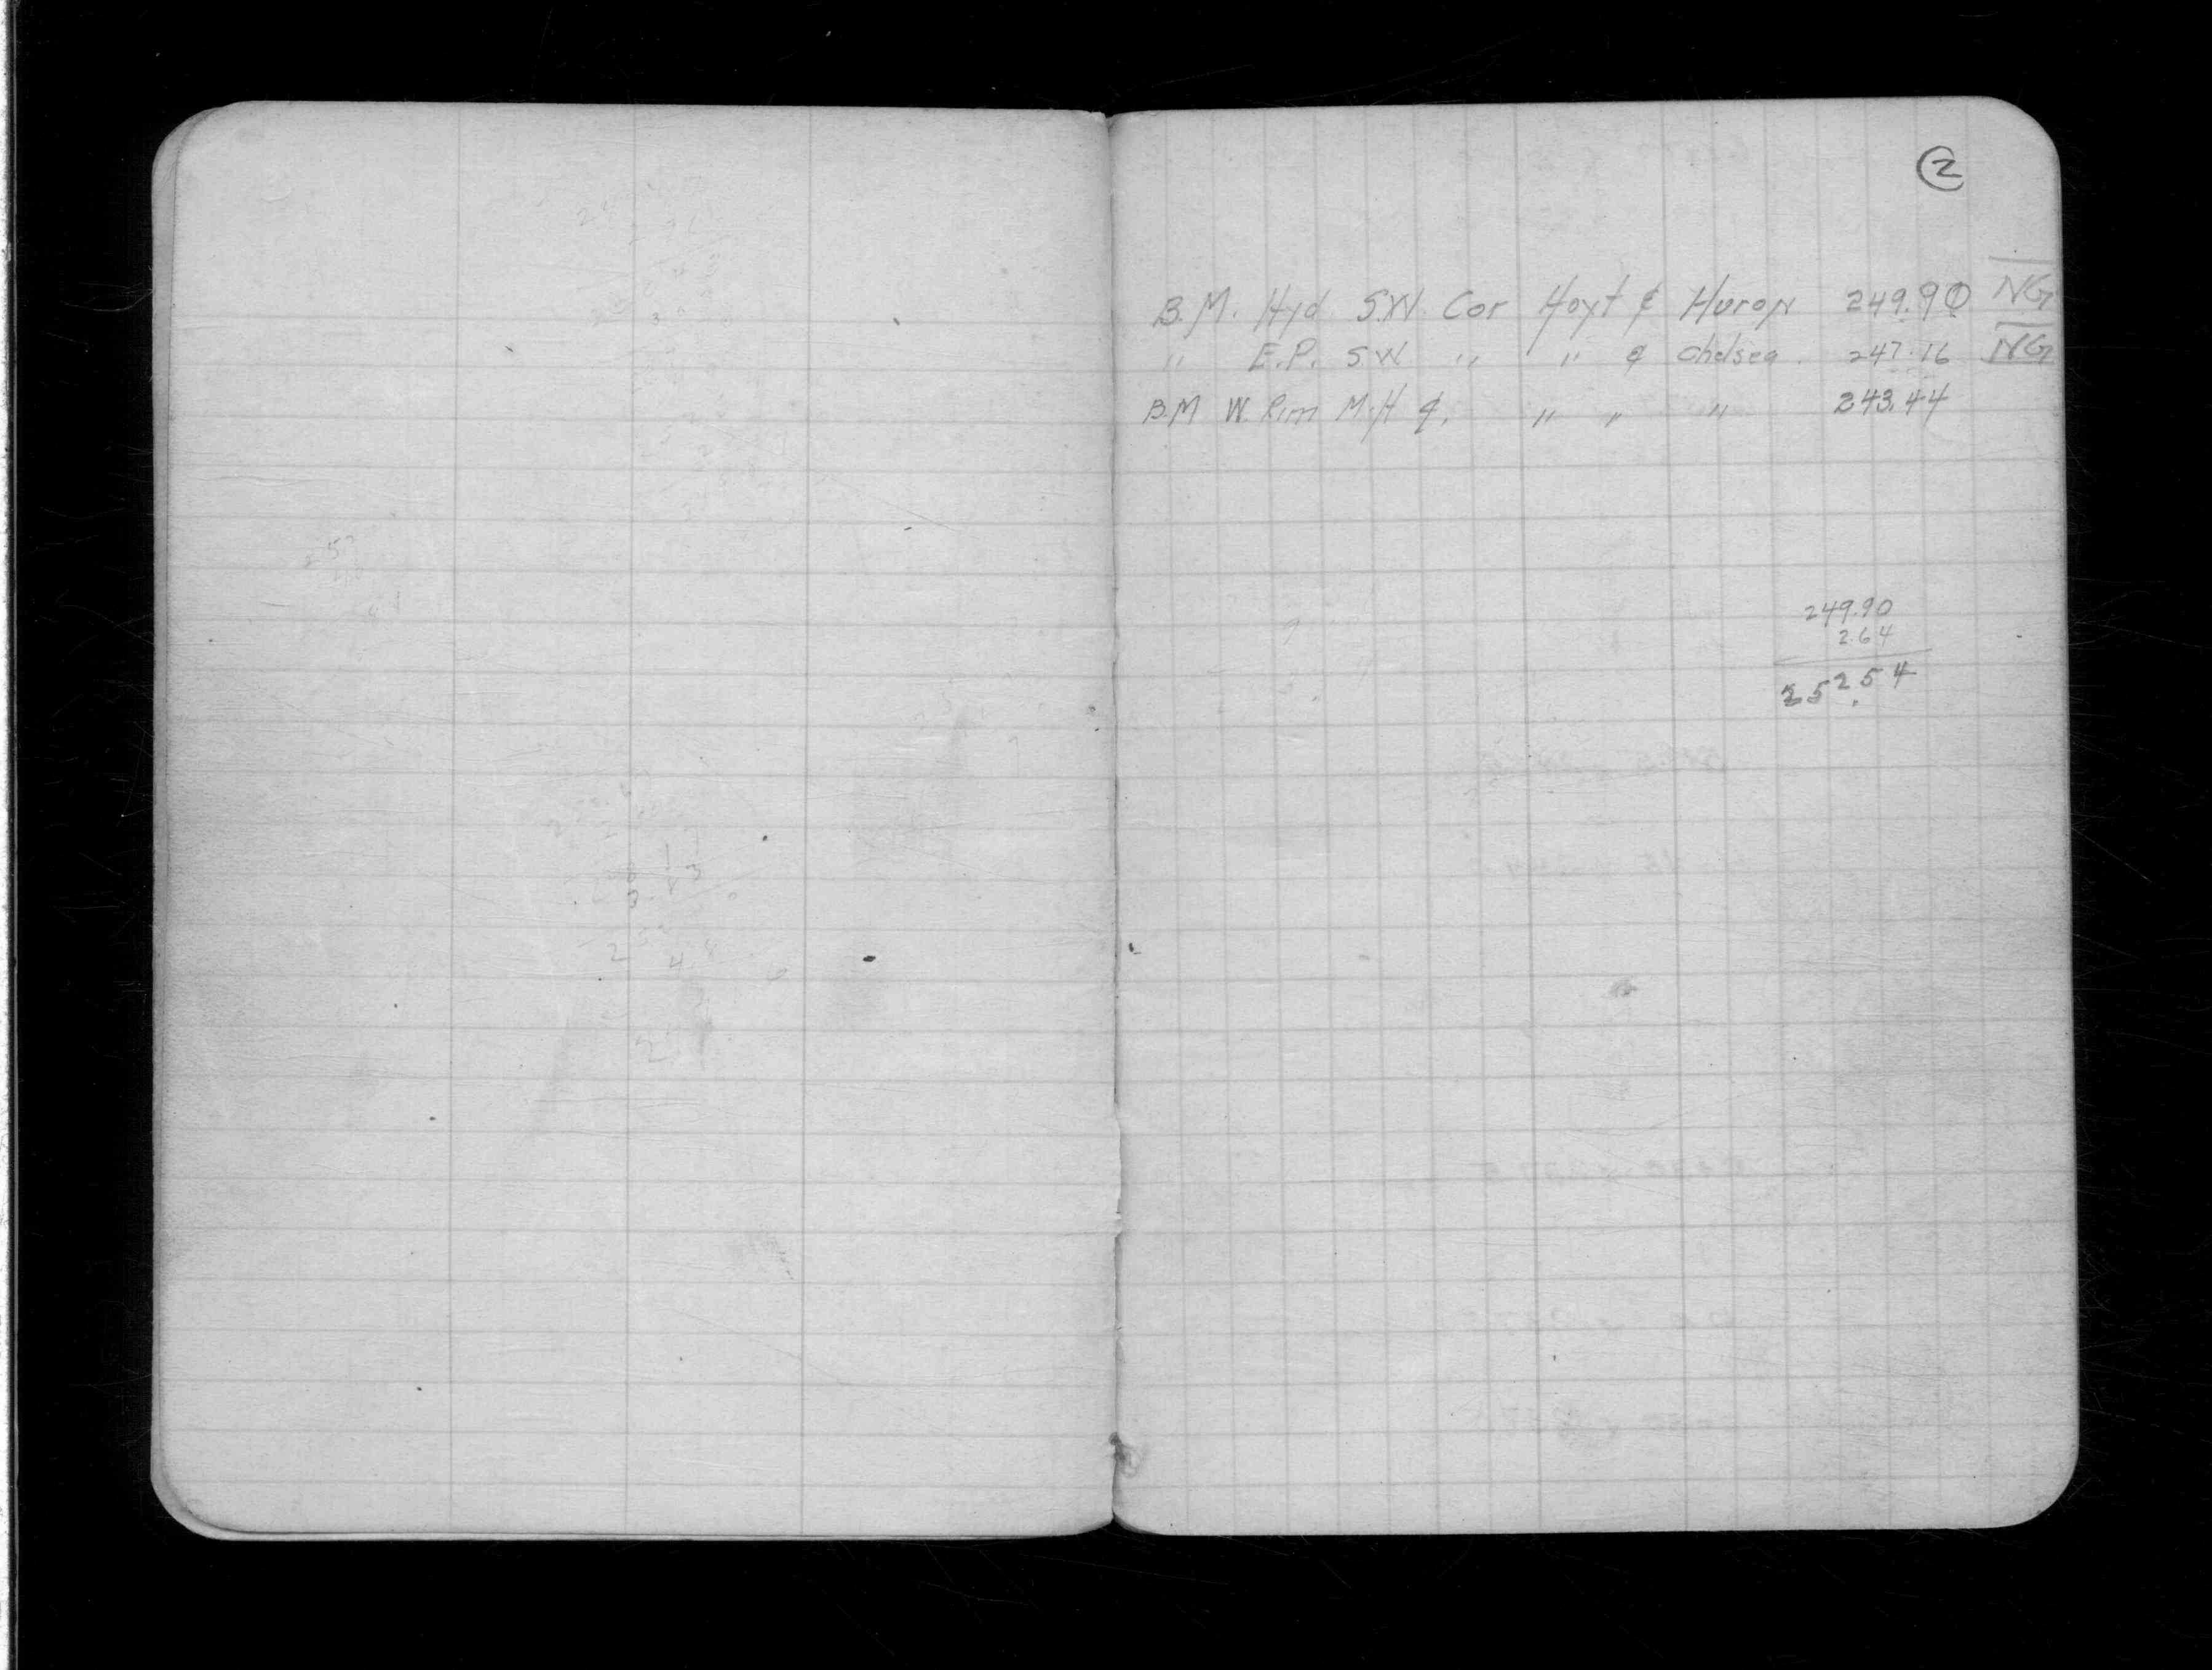 2
B.M. Hyd. S.W. Cor Hoyt & Huron 249.90 NG
" E.P. S.W " " & Chelsea. 247.16 NG
B.M W. Rim M.H ¢. " " " 243.44
249.90
2.64
252.54